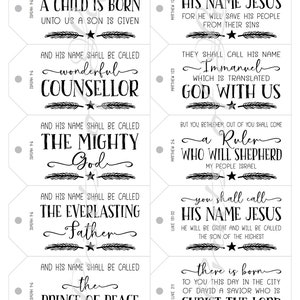 A CHILD IS BORN
UNTO US A SON IS GIVEN
AND HIS NAME SHALL BE CALLED
wonderful
COUNSELLOR
AND HIS NAME SHALL BE CALLED
THE MIGHTY
God
AND HIS NAME SHALL BE CALLED
THE EVERLASTING
Father
AND HIS NAME SHALL BE CALLED
the
PRINCE OF PEACE
HIS NAME JESUS
FOR HE WILL SAVE HIS PEOPLE
FROM THEIR SINS
THEY SHALL CALL HIS NAME
Immanuel
WHICH IS TRANSLATED
GOD WITH US
BUT YOU BETHLEHEM, OUT OF YOU SHALL COME
a Ruler
WHO WILL SHEPHERD
MY PEOPLE ISRAEL
you shall call
HIS NAME JESUS
HE WILL BE GREAT AND WILL BE CALLED
THE SON OF THE HIGHEST
there is born
TO YOU THIS DAY IN THE CITY
OF DAVID A SAVIOR WHO IS
CHRIST THE LORD